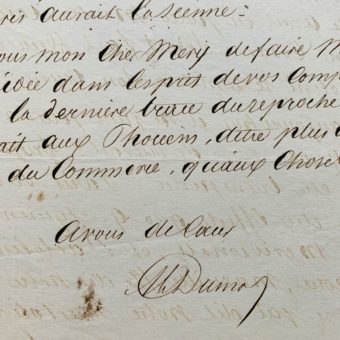 aurait la sienne.
vous mon cher Mery de faire
dans l'esprit de vos
la dernière trace du reproche
fait aux Phocéens, d'être plus
du Commerce, qu'aux Choses
a vous de Coeur
Al Dumas